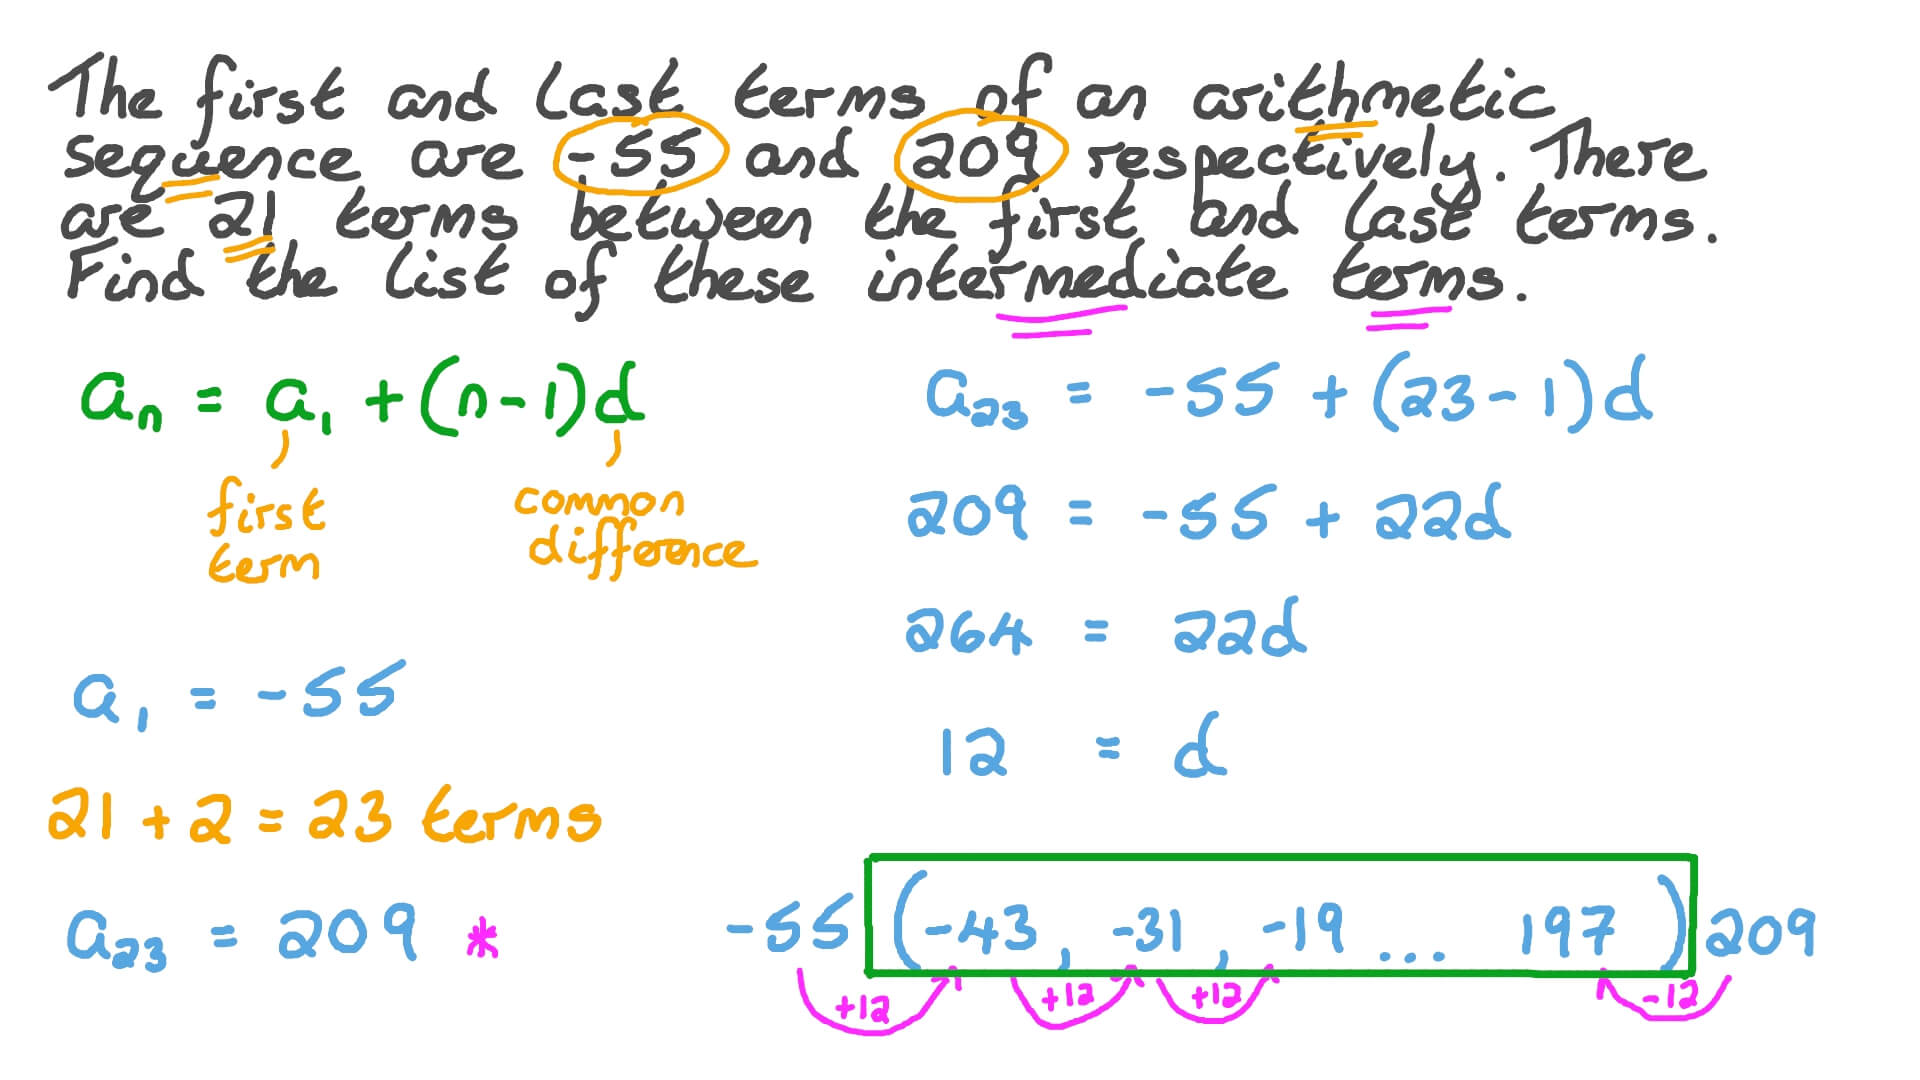 The first and last terms of an arithmetic
sequence are -55 and 209 respectively. There
are 21 terms between the first and last terms.
Find the list of these intermediate terms.
aₙ = a₁ + (n-1)d
first
term
common
difference
a₁ = -55
21 + 2 = 23 terms
a₂₃ = 209 *
a₂₃ = -55 + (23-1)d
209 = -55 + 22d
264 = 22d
12 = d
-55 (-43, -31, -19 ... 197) 209
+12 +12 +12 -12